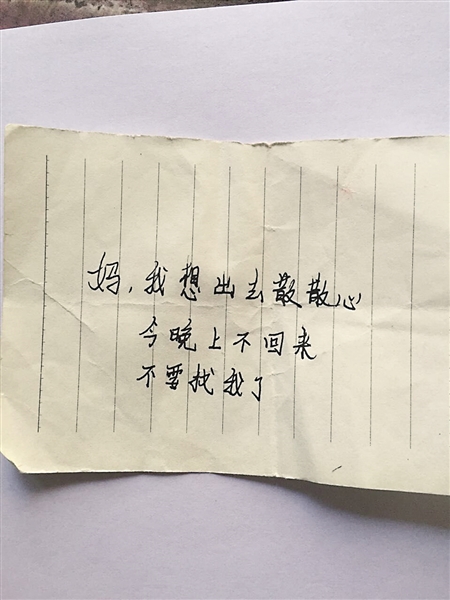 妈,我想出去散散心
今晚上不回来
不要找我了